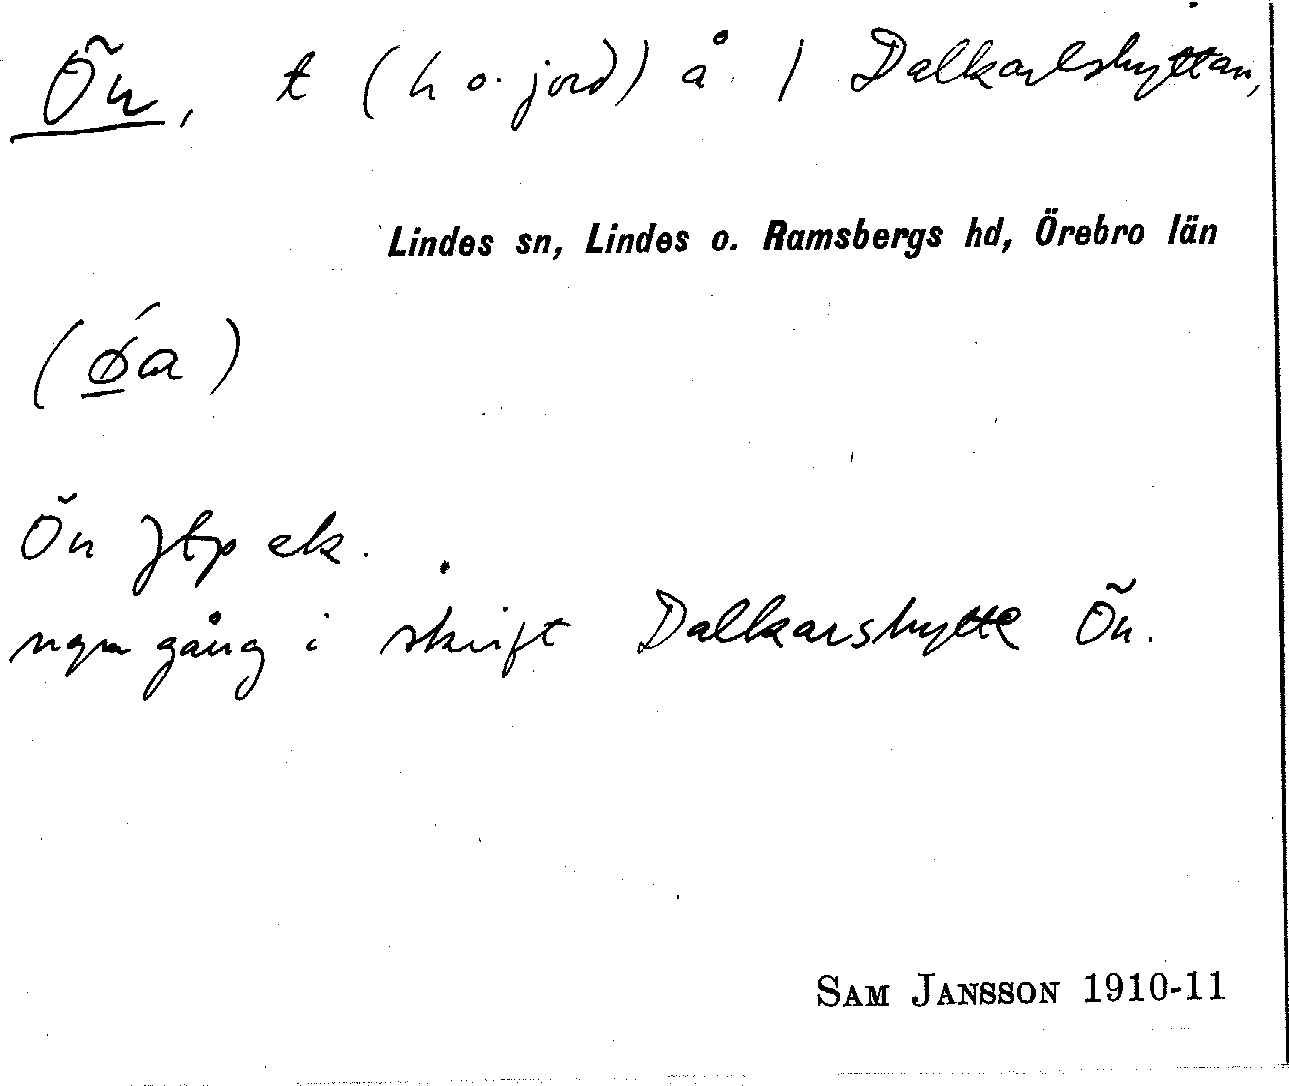 Ön, t (h o. jord) å 1 Dalkarlshyttan,
Lindes sn, Lindes o. Ramsbergs hd, Örebro län
(ǿa)
Ön Jbp ek.
ngn gång i skrift Dalkarshytte Ön.
SAM JANSSON 1910-11